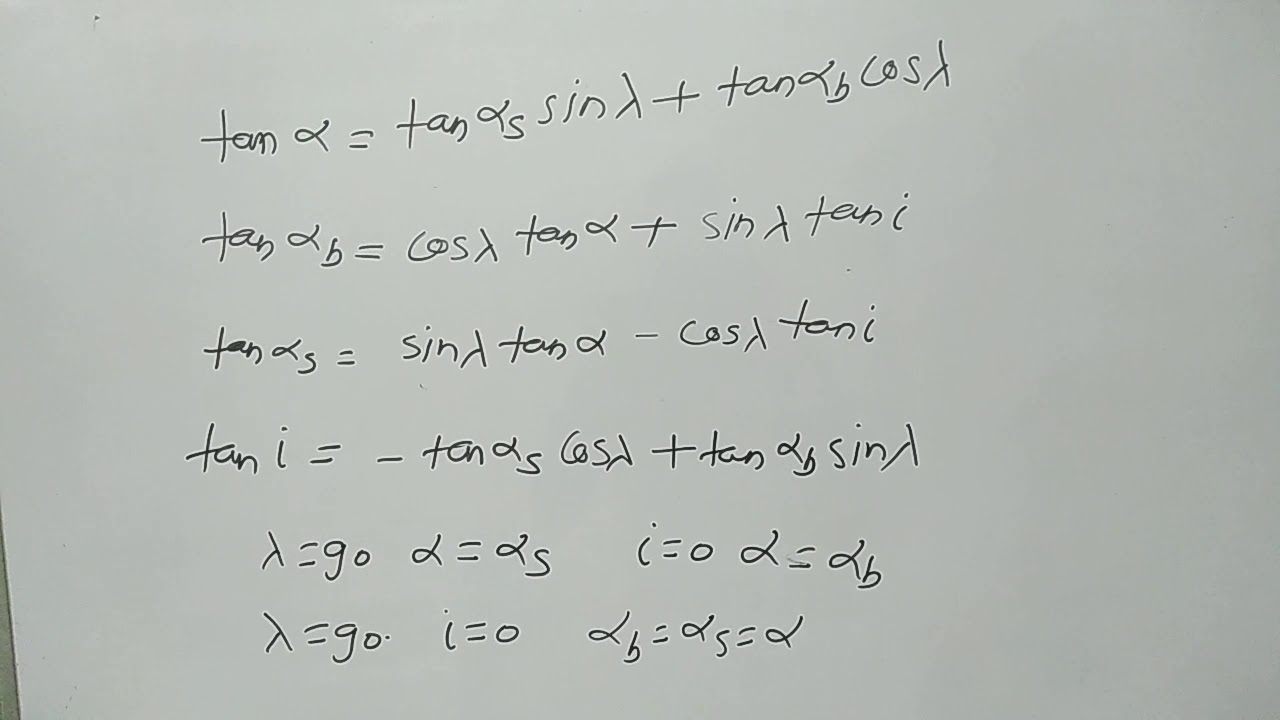 tan α = tan αs sin λ + tan αb cos λ
tan αb = cos λ tan α + sin λ tan i
tan αs = sin λ tan α - cos λ tan i
tan i = - tan αs cos λ + tan αb sin λ
λ = 90 α = αs i = 0 α = αb
λ = 90. i = 0 αb = αs = α